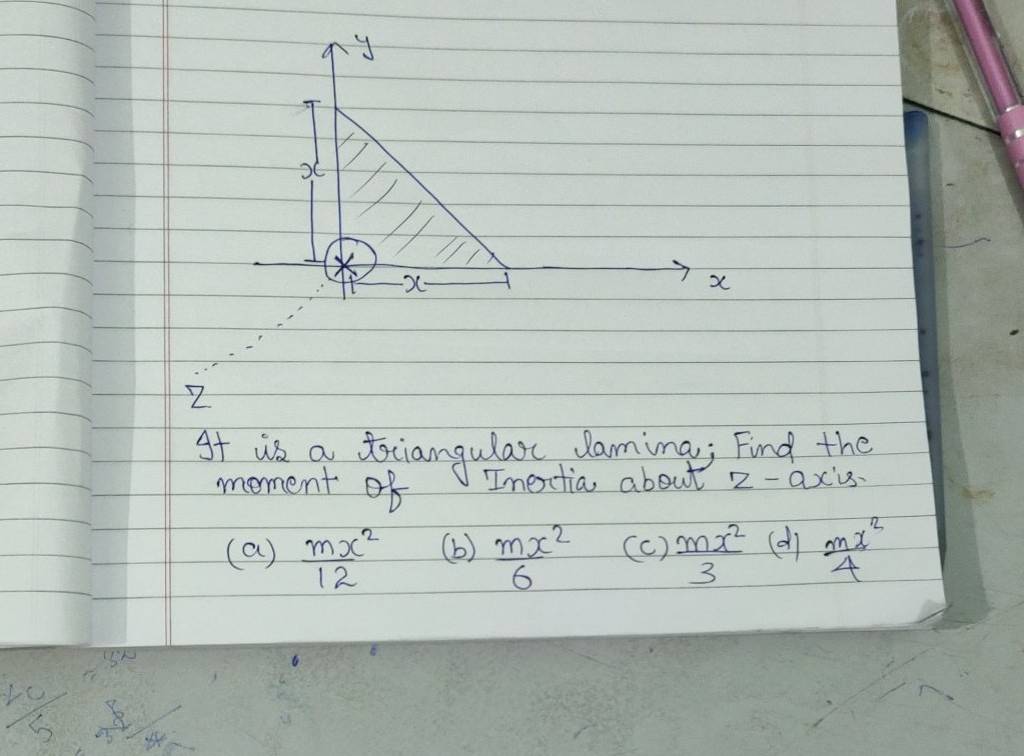 y
x
x
x
Z
It is a triangular lamina; Find the
moment of Inertia about z-axis.
(a) mx²/12 (b) mx²/6 (c) mx²/3 (d) mx²/4
5